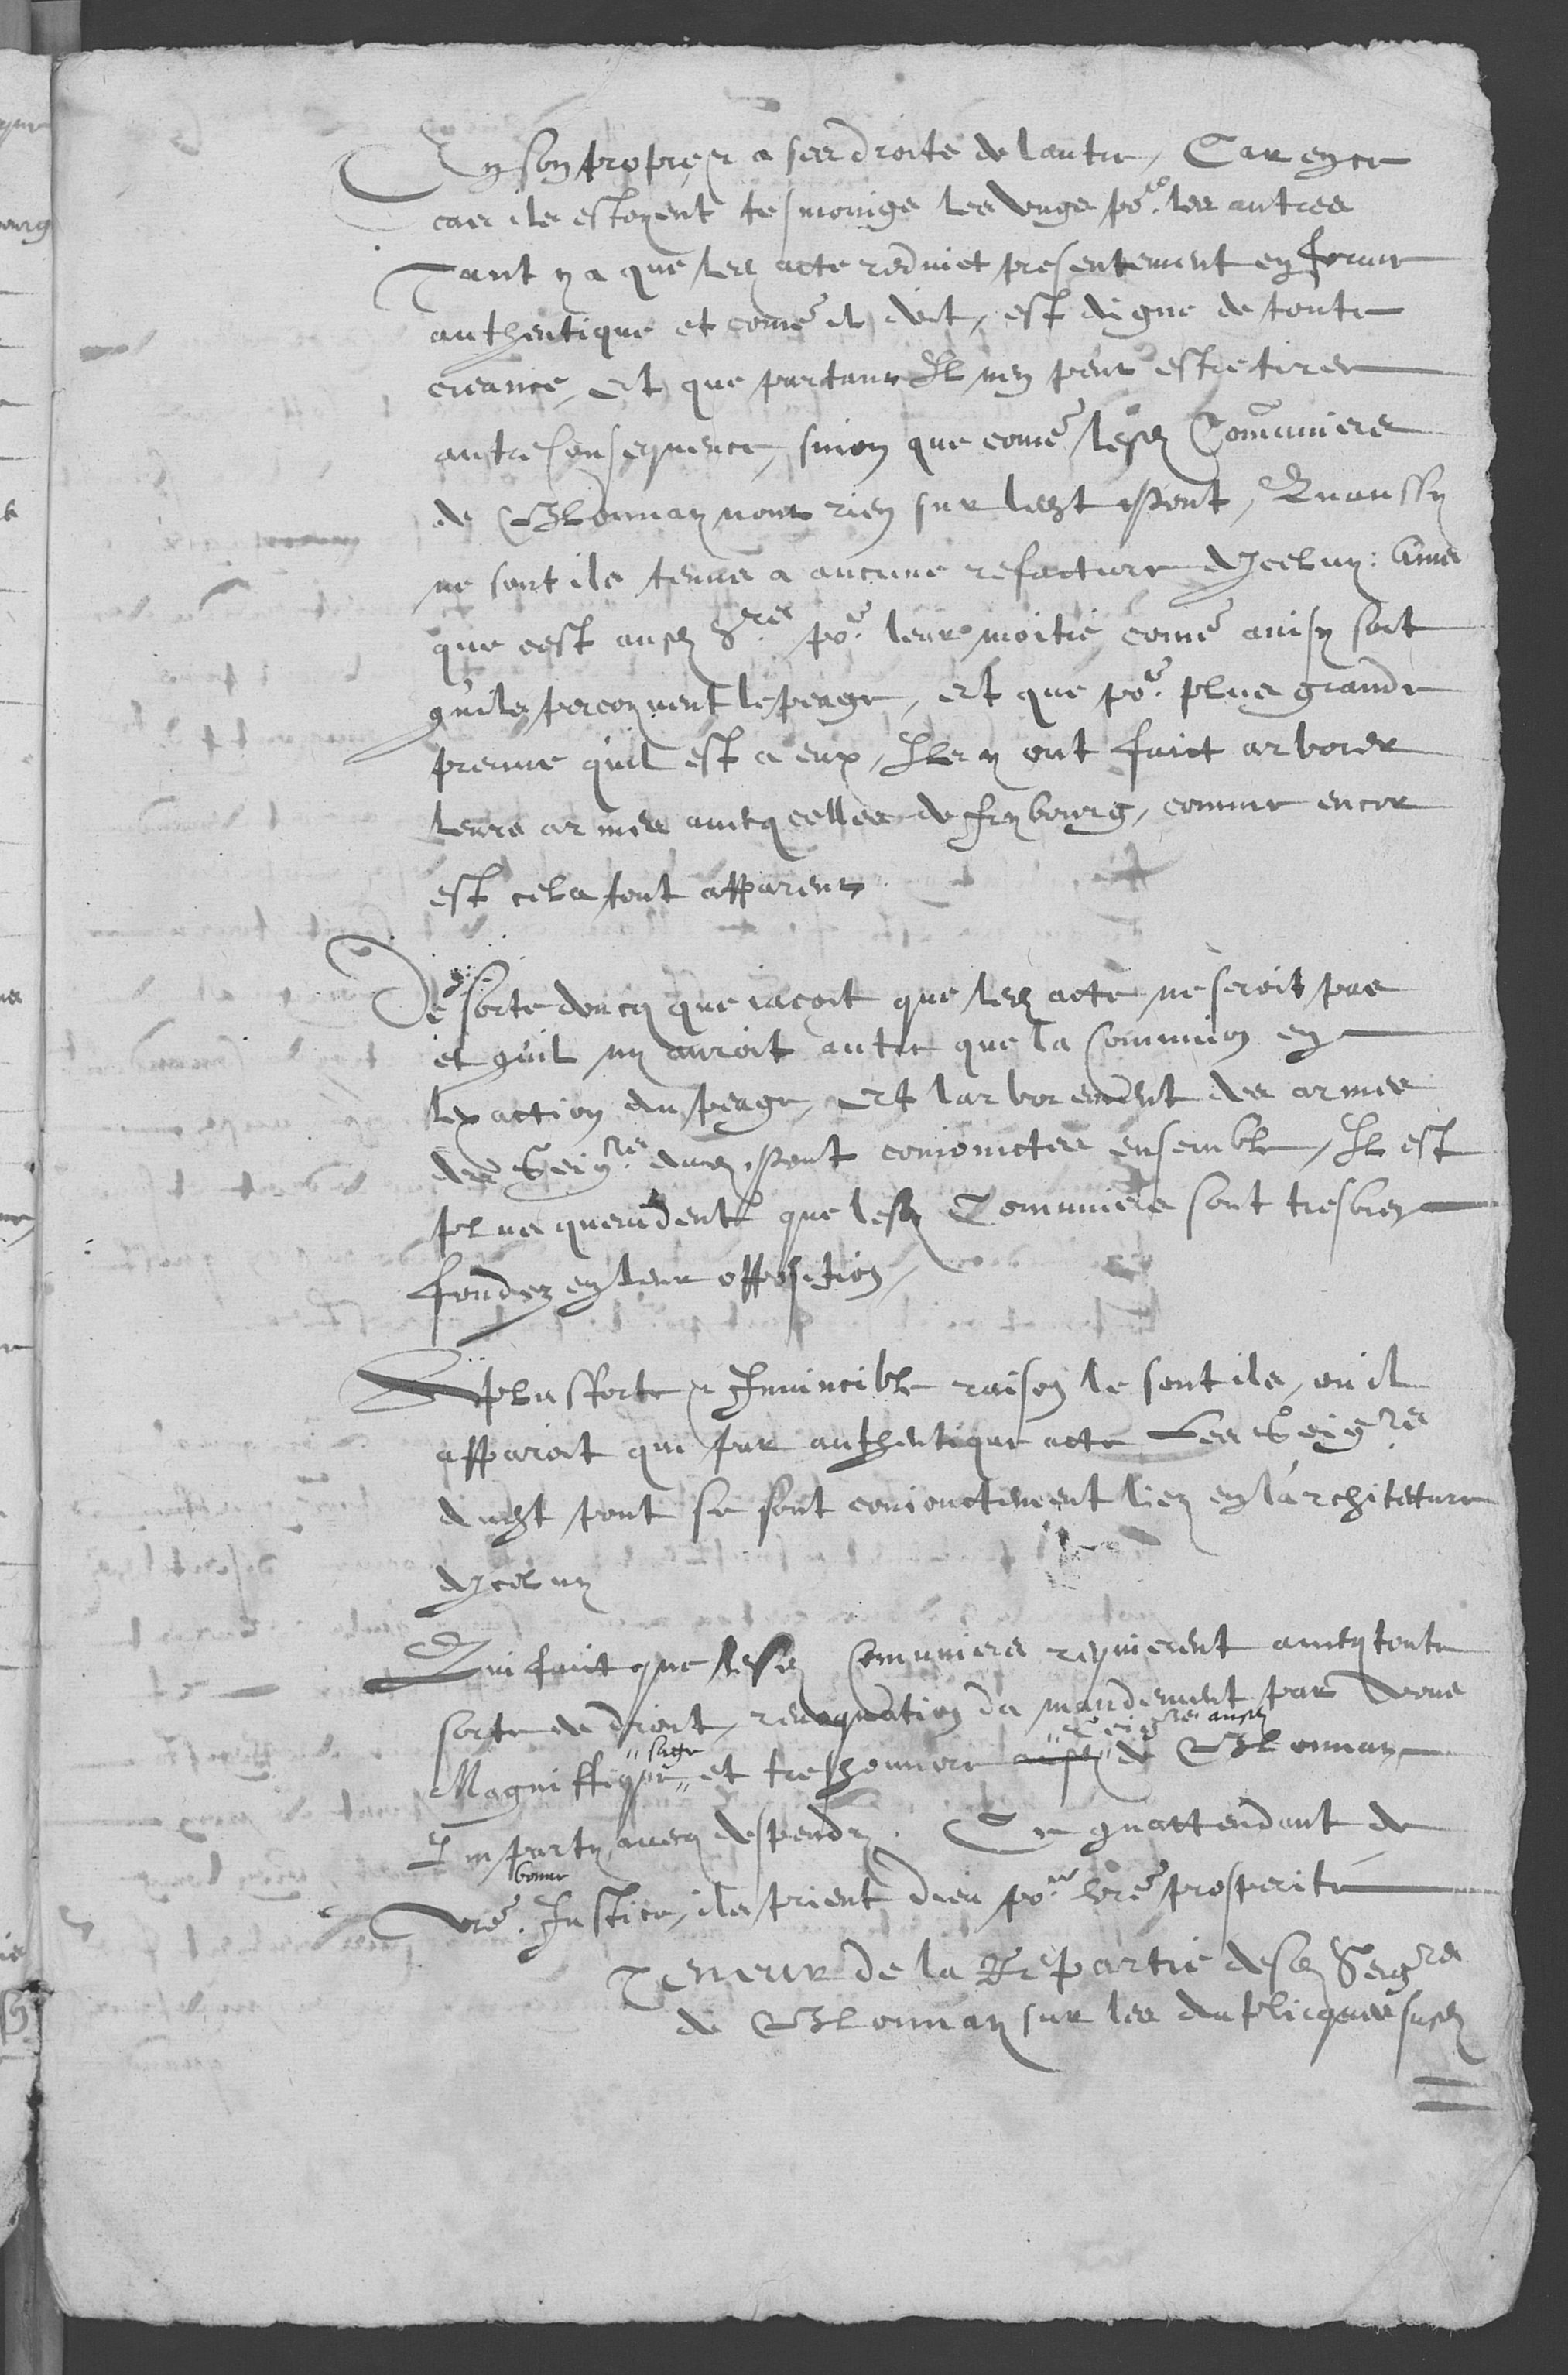 En son propre et a ses droits de lautre, Car en ce
cas ils estoyent tesmoings les ungs po.r les autres
Tant y a que led acte rediuict presentement en forme
authentique et come il doit, est digne de toute
creance, Et que partant Il nen peut estre tiree
autre consequence, sinon que come lesd Comuniers
de Glonnay nont rien sur ledt pont, Quaussy
ne sont ils tenus a aucune refacture diceluy: Ains
que cest ausd S.rs po.r leur moitié, come ainsy soit
quils percoyuent le peage, Et que po.r plus grande
preuue quil est a eux, Ils y ont faict arborer
leurs armes auecq celles de frybourg, comme encor
est cela tout apparent
De sorte doncq que iacoit que led acte ne seroit pas
et quil ny auroit autre que la Commnion en
lexaction du peage, Et larborement des armes
des Seig.rs dud pont conioinctes ensemble, Il est
plus queuident que lesd Comuniers sont tresbien
fondez en leur opposition,
A plus forte et Inuincible raison le sont ils, ou il
apparoit que par authentique acte Les Seig.rs
dudt pont se sont conionctement liez en l'architetture
dyceluy
Qui fait que lesd Comuniers requierent auecq toute
sorte de droit, reuoquation du mandement par vous
Magniffique sage et treshonnore Seig.rs ausd de Glonnay
Imparty auecq despendz. Ce quattendant de
vre. bonne Justice, ils prient dieu po.r vre prosperité
Teneur de la Repartie desd Seig.rs
de Glonnay sur les duplicques susd